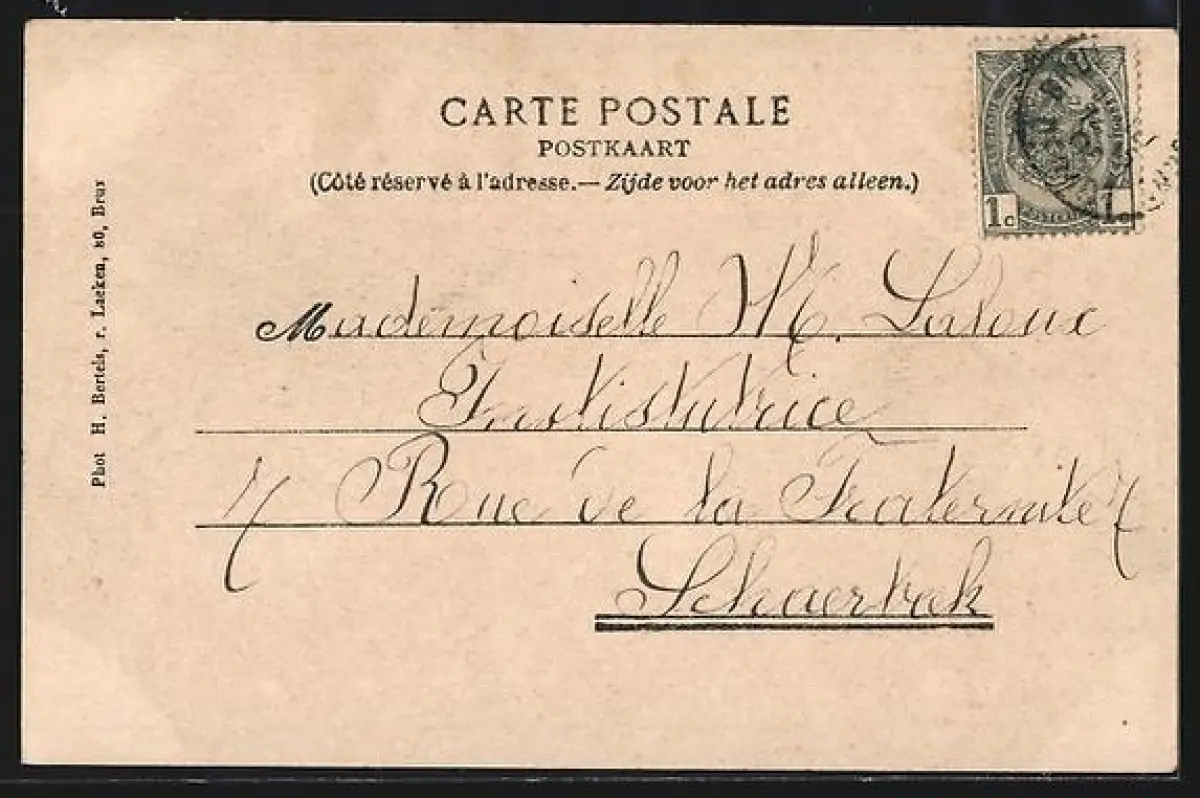 CARTE POSTALE
POSTKAART
(Côté réservé à l'adresse.— Zijde voor het adres alleen.)
1c 1c
Mademoiselle M. Laloux
Institutrice
7 Rue de la Fraternité 7
Schaerbeek
Phot H. Bertels, r. Laeken, 80, Brux